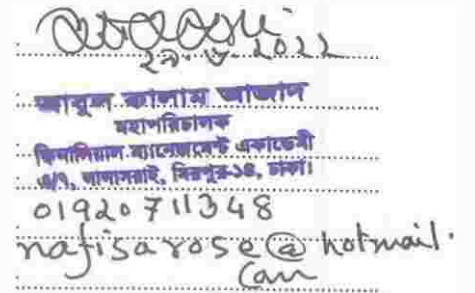 ২৯.৬.২০২২
আবুল কালাম আজাদ
মহাপরিচালক
ফিনান্সিয়াল ম্যানেজমেন্ট একাডেমী
মিরপুর-১৪, ঢাকা।
01920711348
nafisarose@hotmail.
Com